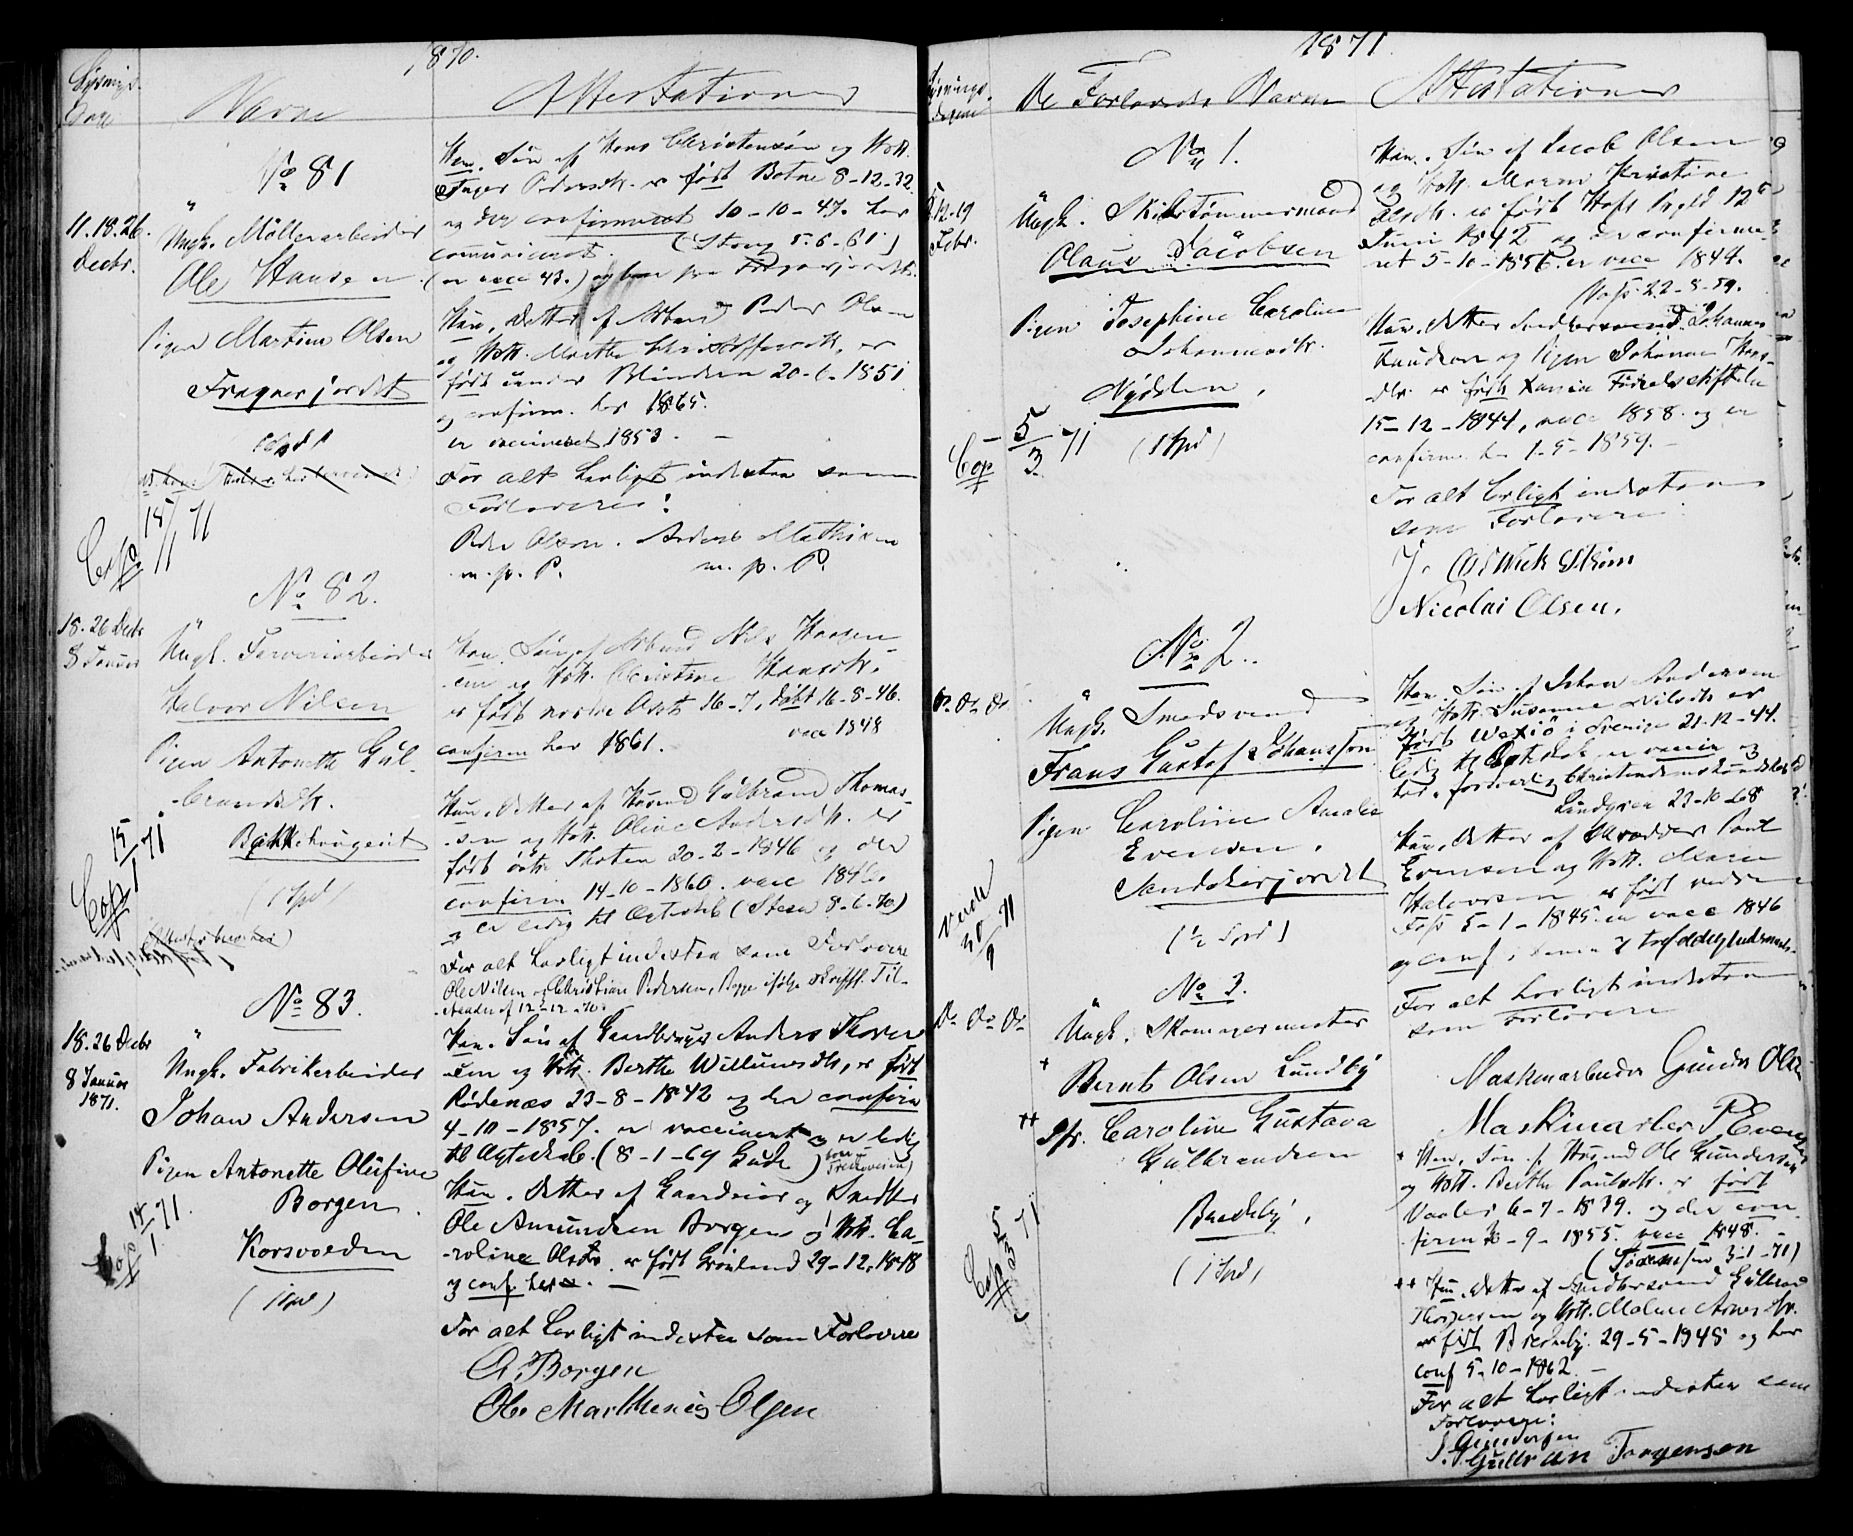 1870.
Lysnings
Dage
Navne
Attestationer
No 81
11. 18. 26.
Decbr.
Ungk. Möllerarbeider
Ole Hansen
Pigen Martine Olsen
Fragnerjordet
Cop 15/1 71
Han. Søn af Hans Christensen og Hstr.
Inger Pedersdtr. er født Botne 8-12-32.
og der confirmeret 10-10-47. har
comuniceret. (Strøng 5-6-61)
(er vacc 43.)
Hun, Datter af Arbmd Peder Olsen
og Hstr. Marthe Christoffersdtr. er
født under Blindern 20-6-1851
og confirm. her 1865.
er vaccineret 1853. -
For alt Lovligt indestaa som
Forlovere:
Peder Olsen. Anders Mathisen
m. p. P. m. p. P.
No 82.
18. 26 Decbr
8 Januar
Ungk. Farveriarbeider
Halvor Nilsen
Pigen Antonette Gul-
brandsdtr.
Bakkehaugen
Cop 15/1 71
(1 Spd)
Han. Søn af Arbmd Nils Hansen
og Hstr. Christine Hansdtr.
er født nordre Aset 16-7, døbt 16-8-46.
confirm her 1861. vacc 1848
Hun. Datter af Husmd Gulbrand Thomas-
sen og Hstr. Oline Andersdtr. er
født østre Thoten 20-2-1846 og der
confirm 14-10-1860. vacc 1846.
og er ledig til Ægteskab (Steen 8-6-70)
For alt Lovligt indestaa som Forlovere
Ole Nilsen og Christian Pedersen, Begge ifølge skriftl. Til-
staaelse af 12-12-70.
No 83.
18. 26 Decbr
8 Januar
1871.
Ungk. Fabrikarbeider
Johan Andersen
Pigen Antonette Olufine
Borgen
Korsvolden
Cop 14/1 71.
(1 Spd)
Han. Søn af Gaardbruger Anders Thorer
sen og Hstr. Berthe Willumsdtr, er født
Rødenæs 23-8-1842 og der confirm
4-10-1857. er vaccineret og er ledig
til Ægteskab. (8-1-69 Gude)
Hun. Datter af Gaardeier og Snedker
Ole Amundsen Borgen og Hstr. Ca-
roline Olsdtr. er født Grønland 29-12-1848
og conf. her. -
For alt Lovligt indestaa som Forlovere
A. Borgen
Ole Marthenius Olsen
1871.
Lysnings-
dagene
De Forlovedes Navne
Attestationer
No 1.
5. 12. 19
Febr.
Ungk. Skibstømmermand
Olaus Jacobsen
Pigen Josephine Caroline
Johannesdtr.
Nydalen.
Cop 5/3 71
(1 Spd)
Han. Søn af Jacob Olsen
og Hstr. Maren Kristine
Olsdtr. er født Hofs Prgld 12te
Juni 1842 og der confirme-
ret 5-10-1856. er vacc 1844.
22-8-59.
Hun. Datter Snedkersvend Johannes
Knudsen og Pigen Johanne Hans-
dtr. er født Xania Fødselsstiftelse
15-12-1844, vacc 1858. og er
confirm. her 1-5-1859. -
For alt Lovligt indestaa
som Forlovere.
J. Strøm
Nicolai Olsen.
No 2.
Do Do Do
Ungk. Smedsvend
Frans Gustaf Johansson
Pigen Caroline Amalie
Evensen.
Sandakerjordet
30/9 71
(1/2 Spd)
Han. Søn af Johan Andersson
og Hstr. Susanna Nilsdtr er
født Wexiö i Sverige 21-12-44.
ledig til Ægteskab er vaccin og
har fordærlig Christendomskundskab
Lundgren 23-10-68
Hun. Datter af Skrædder Paul
Evensen og Hstr. Maren
Halvorsen er født nedre
Foss 5-1-1845. er vacc 1846
og conf. i denne Trefoldighedsmenh.
For alt Lovligt indestaa
som Forlovere
Maskinarbeider Gunder Olsen
Maskinarbei P Evensen
No 3.
Do Do Do
Ungk. Skomagermester
+
Bernt Olsen Lundby
++
Pig. Caroline Gustava
Gulbrandsen
Brekkeby.
(1 Spd)
Cop 5/3 71
+ Han. Søn af Husmd Ole Gundersen
og Hstr. Berthe Paulsdtr. er født
Vaaler 6-7-1839. og der con-
firm 30-9-1855. vacc 1848. -
3-1-71)
++ Hun. Datter af Snedkersvend Gulbrand
Thorgersen og Hstr. Maline Arnesdtr.
er født Brekkeby. 29-5-1845 og her
conf 5-10-1862. -
For alt Lovligt indestaa som
Forlovere:
Gundersen
Gullbran Torgensen